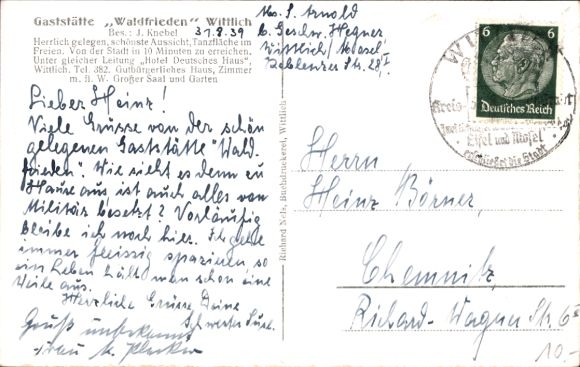 Gaststätte „Waldfrieden" Wittlich
Bes.: J. Knebel
Herrlich gelegen, schönste Aussicht, Tanzfläche im
Freien. Von der Stadt in 10 Minuten zu erreichen.
Unter gleicher Leitung „Hotel Deutsches Haus",
Wittlich. Tel. 382. Gutbürgerliches Haus, Zimmer
m. B. W. Großer Saal und Garten
31.8.39
Abs. S. Arnold
b. Geschw. Hegner
Wittlich/Mosel
Koblenzer Str. 28 I
Lieber Heinz!
Viele Grüsse von der schön
gelegenen Gaststätte "Wald-
frieden". Wie sieht es denn zu
Hause aus ist auch alles von
Militär besetzt? Vorläufig
bleibe ich noch hier. Ich gehe
immer fleissig spazieren so
ein Leben hält man schon eine
Weile aus.
Herzliche Grüsse Deine
Schwester Suse.
Gruß unbekannt
Frau
Richard Nels, Buchdruckerei, Wittlich
6 6
Deutsches Reich
Eifel und Mosel
die Stadt
Herrn
Heinz Börner,
Chemnitz,
Richard-Wagner Str. 6
10.-